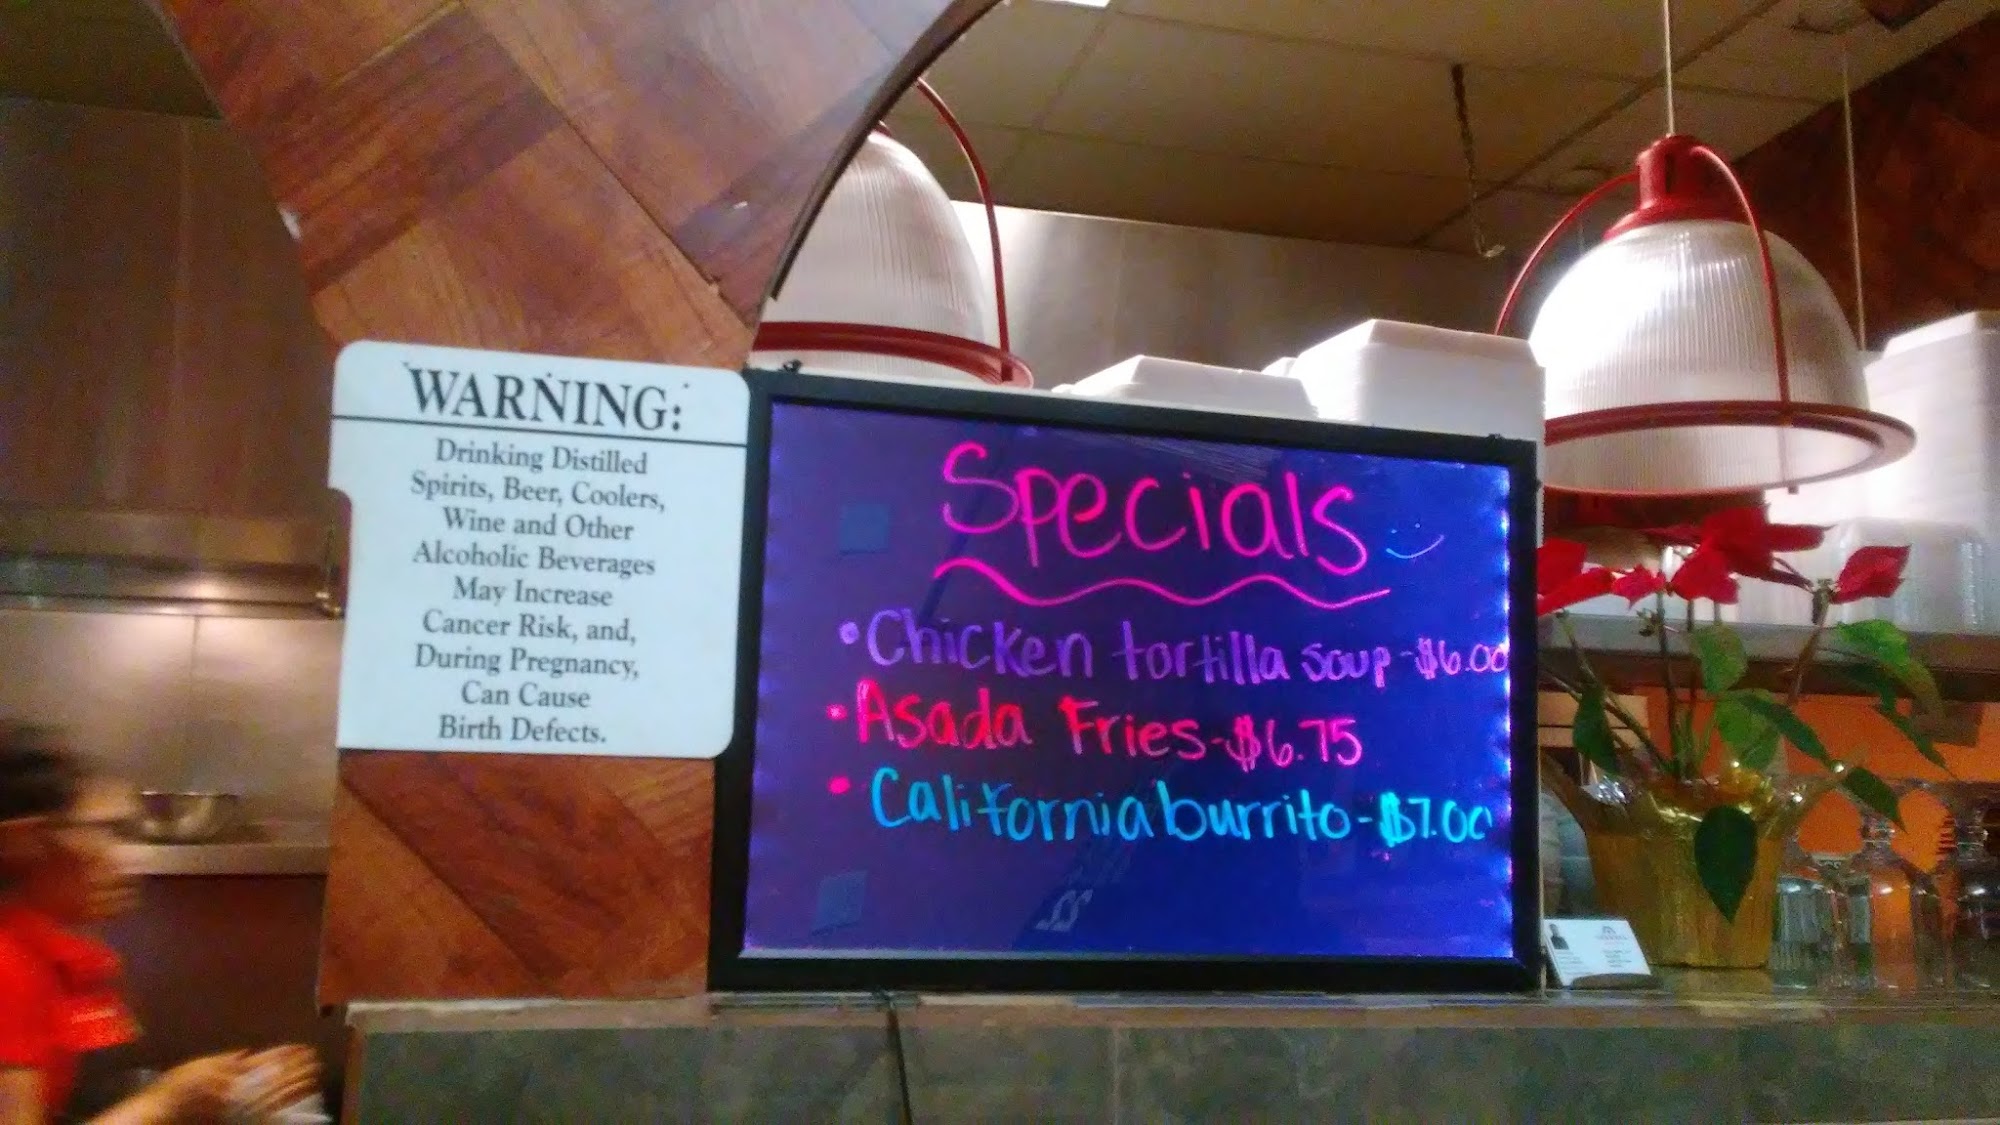 WARNING:
Drinking Distilled
Spirits, Beer, Coolers,
Wine and Other
Alcoholic Beverages
May Increase
Cancer Risk, and,
During Pregnancy,
Can Cause
Birth Defects.
Specials
•Chicken tortilla soup-$6.00
•Asada Fries-$6.75
•California burrito-$7.00